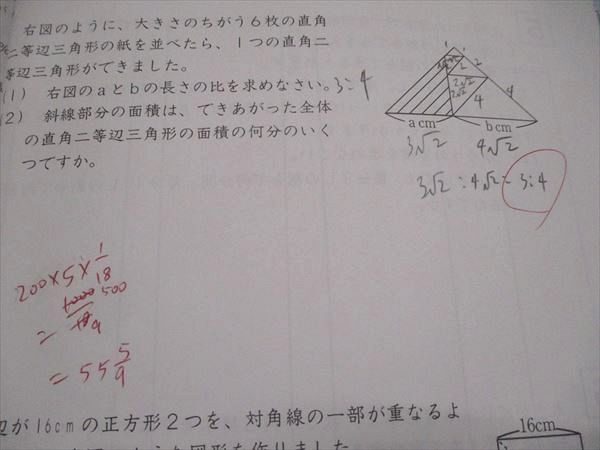 右図のように、大きさのちがう6枚の直角
二等辺三角形の紙を並べたら、1つの直角二
等辺三角形ができました。
(1) 右図のaとbの長さの比を求めなさい。3:4
(2) 斜線部分の面積は、できあがった全体
の直角二等辺三角形の面積の何分のいく
つですか。
1 1
2
2√2
2√2
4
4
a cm b cm
3√2 4√2
3√2 : 4√2 = 3:4
200×5×1/18
= 500/9
= 55 5/9
辺が16cmの正方形2つを、対角線の一部が重なるよ
16cm